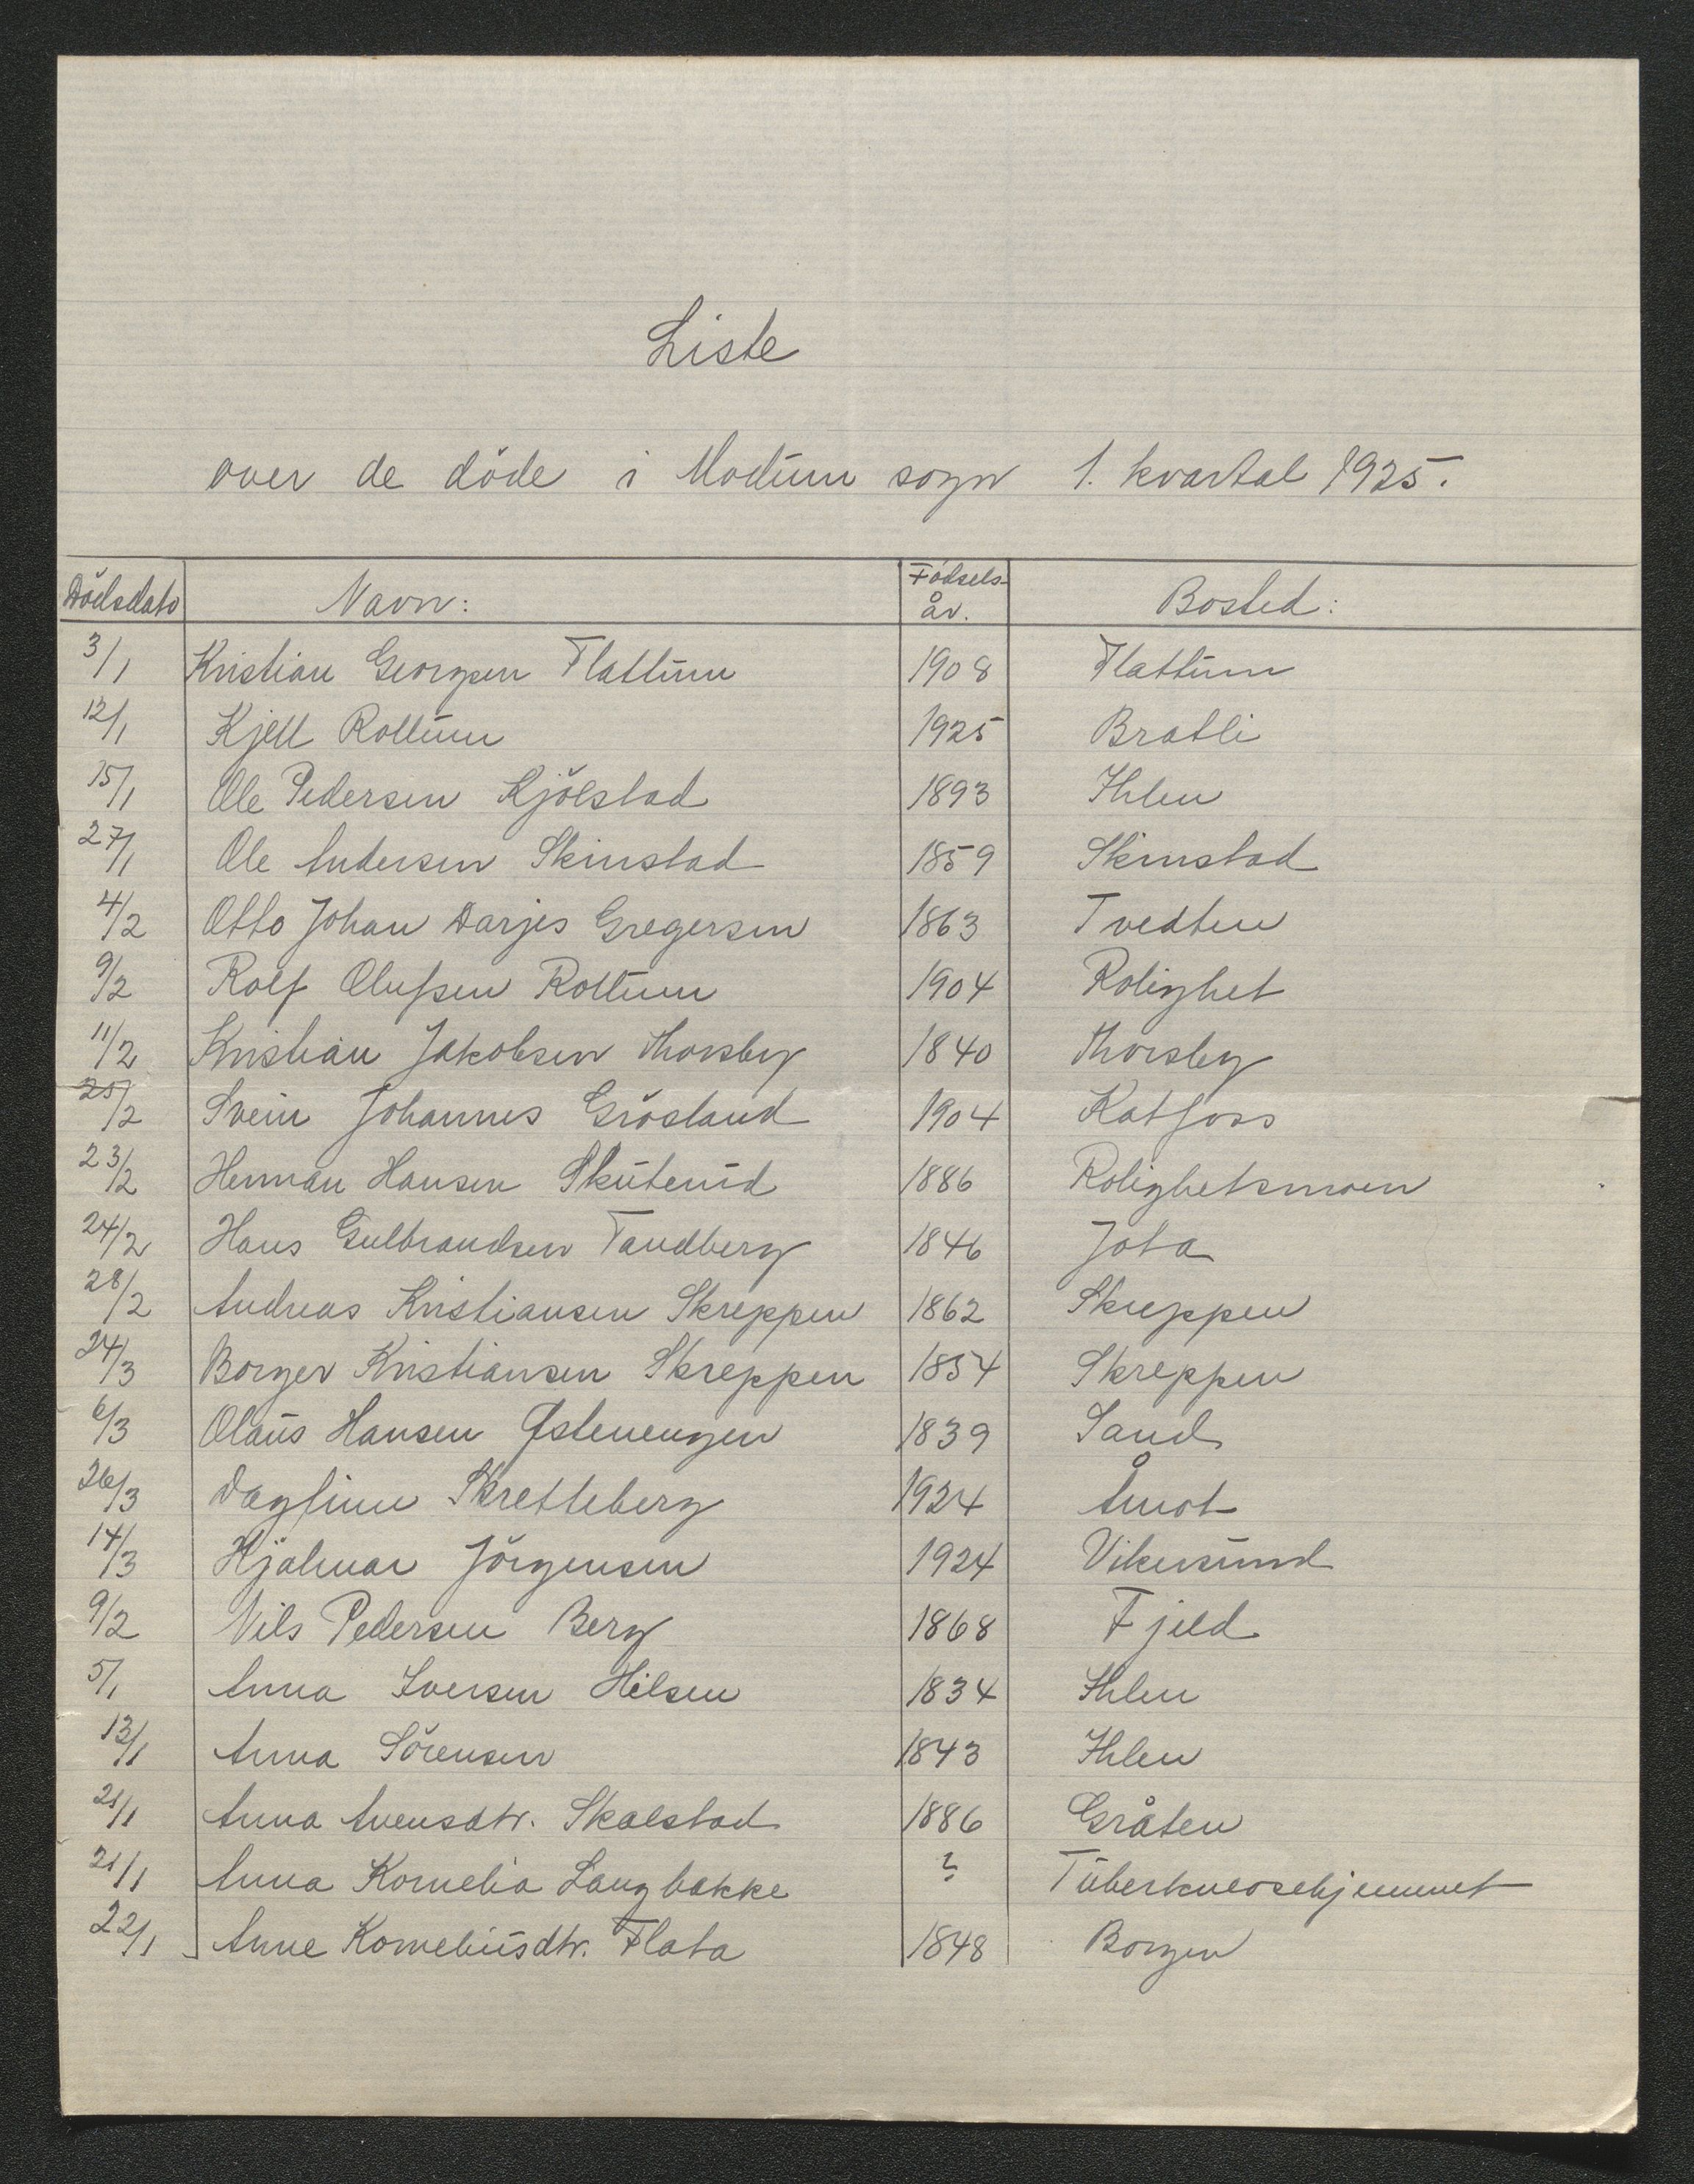 Liste
over de döde i Modum sogn 1. kvartal 1925.
Dödsdato Navn: Fødsels- år. Bosted:
3/1 Kristian Georgsen Flattum 1908 Flattum
12/1 Kjell Rollum 1925 Bratli
15/1 Ole Pedersen Kjölstad 1893 Ihlen
27/1 Ole Andersen Skinstad 1859 Skinstad
4/2 Otto Johan Darjes Gregersen 1863 Tvedten
9/2 Rolf Olufsen Rollum 1904 Rolighet
11/2 Kristian Jakobsen Thorsby 1840 Thorsby
25/2 Svein Johannes Grösland 1904 Katfoss
23/2 Herman Hansen Skuterud 1886 Rolighetsmoen
24/2 Hans Gulbrandsen Tandberg 1846 Jota
28/2 Andreas Kristiansen Skreppen 1862 Skreppen
24/3 Borger Kristiansen Skreppen 1854 Skreppen
6/3 Olaus Hansen Østenengen 1839 Sand
26/3 Dagfinn Skretteberg 1924 Åmot
14/3 Hjalmar Jörgensen 1924 Vikersund
9/2 Nils Pedersen Berg 1868 Fjeld
5/1 Anna Iversen Hilsen 1834 Ihlen
13/1 Anna Sörensen 1843 Ihlen
21/1 Anna Svensdtr. Skalstad 1886 Gråten
21/1 Anna Kornelia Langbakke ? Tuberkulosehjemmet
22/1 Anne Korneliusdtr. Flata 1848 Borgen